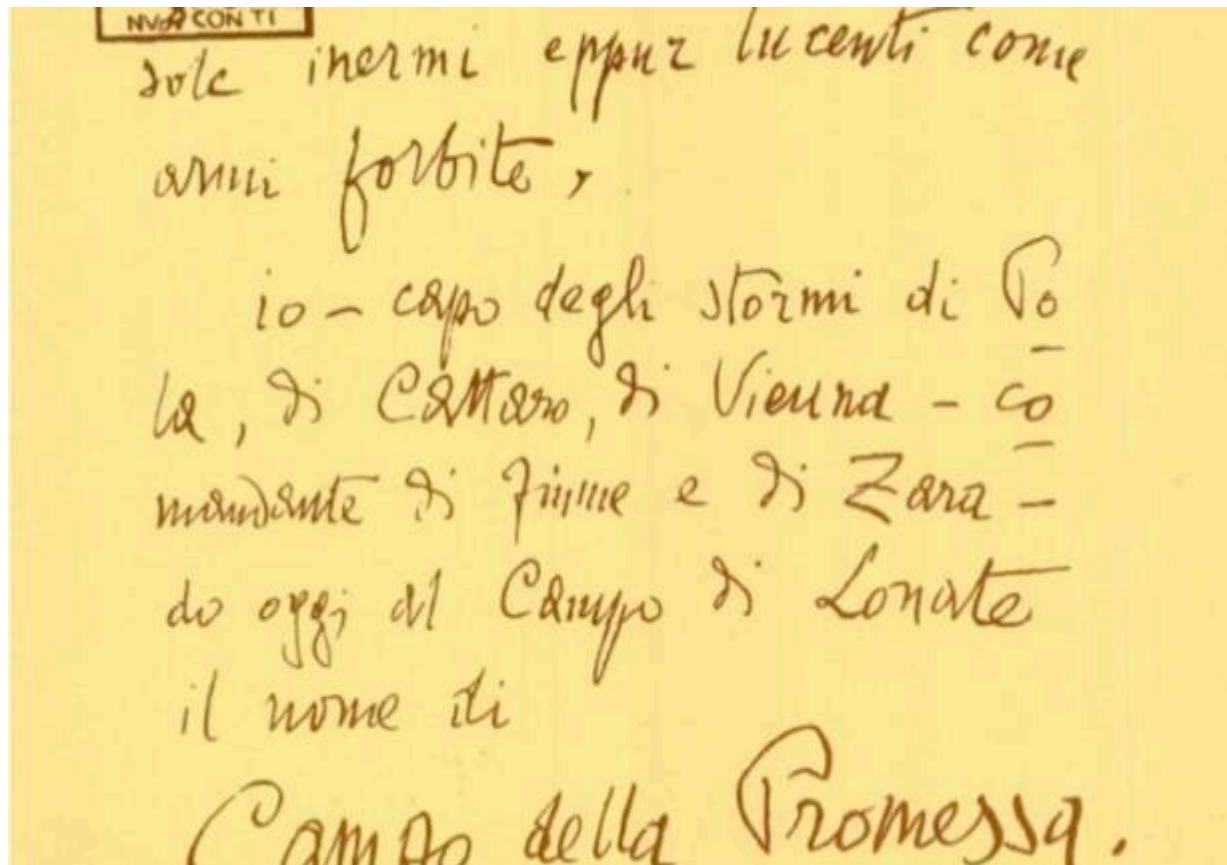 sole inermi eppur lucenti come
armi forbite,
io – capo degli stormi di Po
la, di Cattaro, di Vienna – co
mandante di Fiume e di Zara –
do oggi al Campo di Lonate
il nome di
Campo della Promessa.